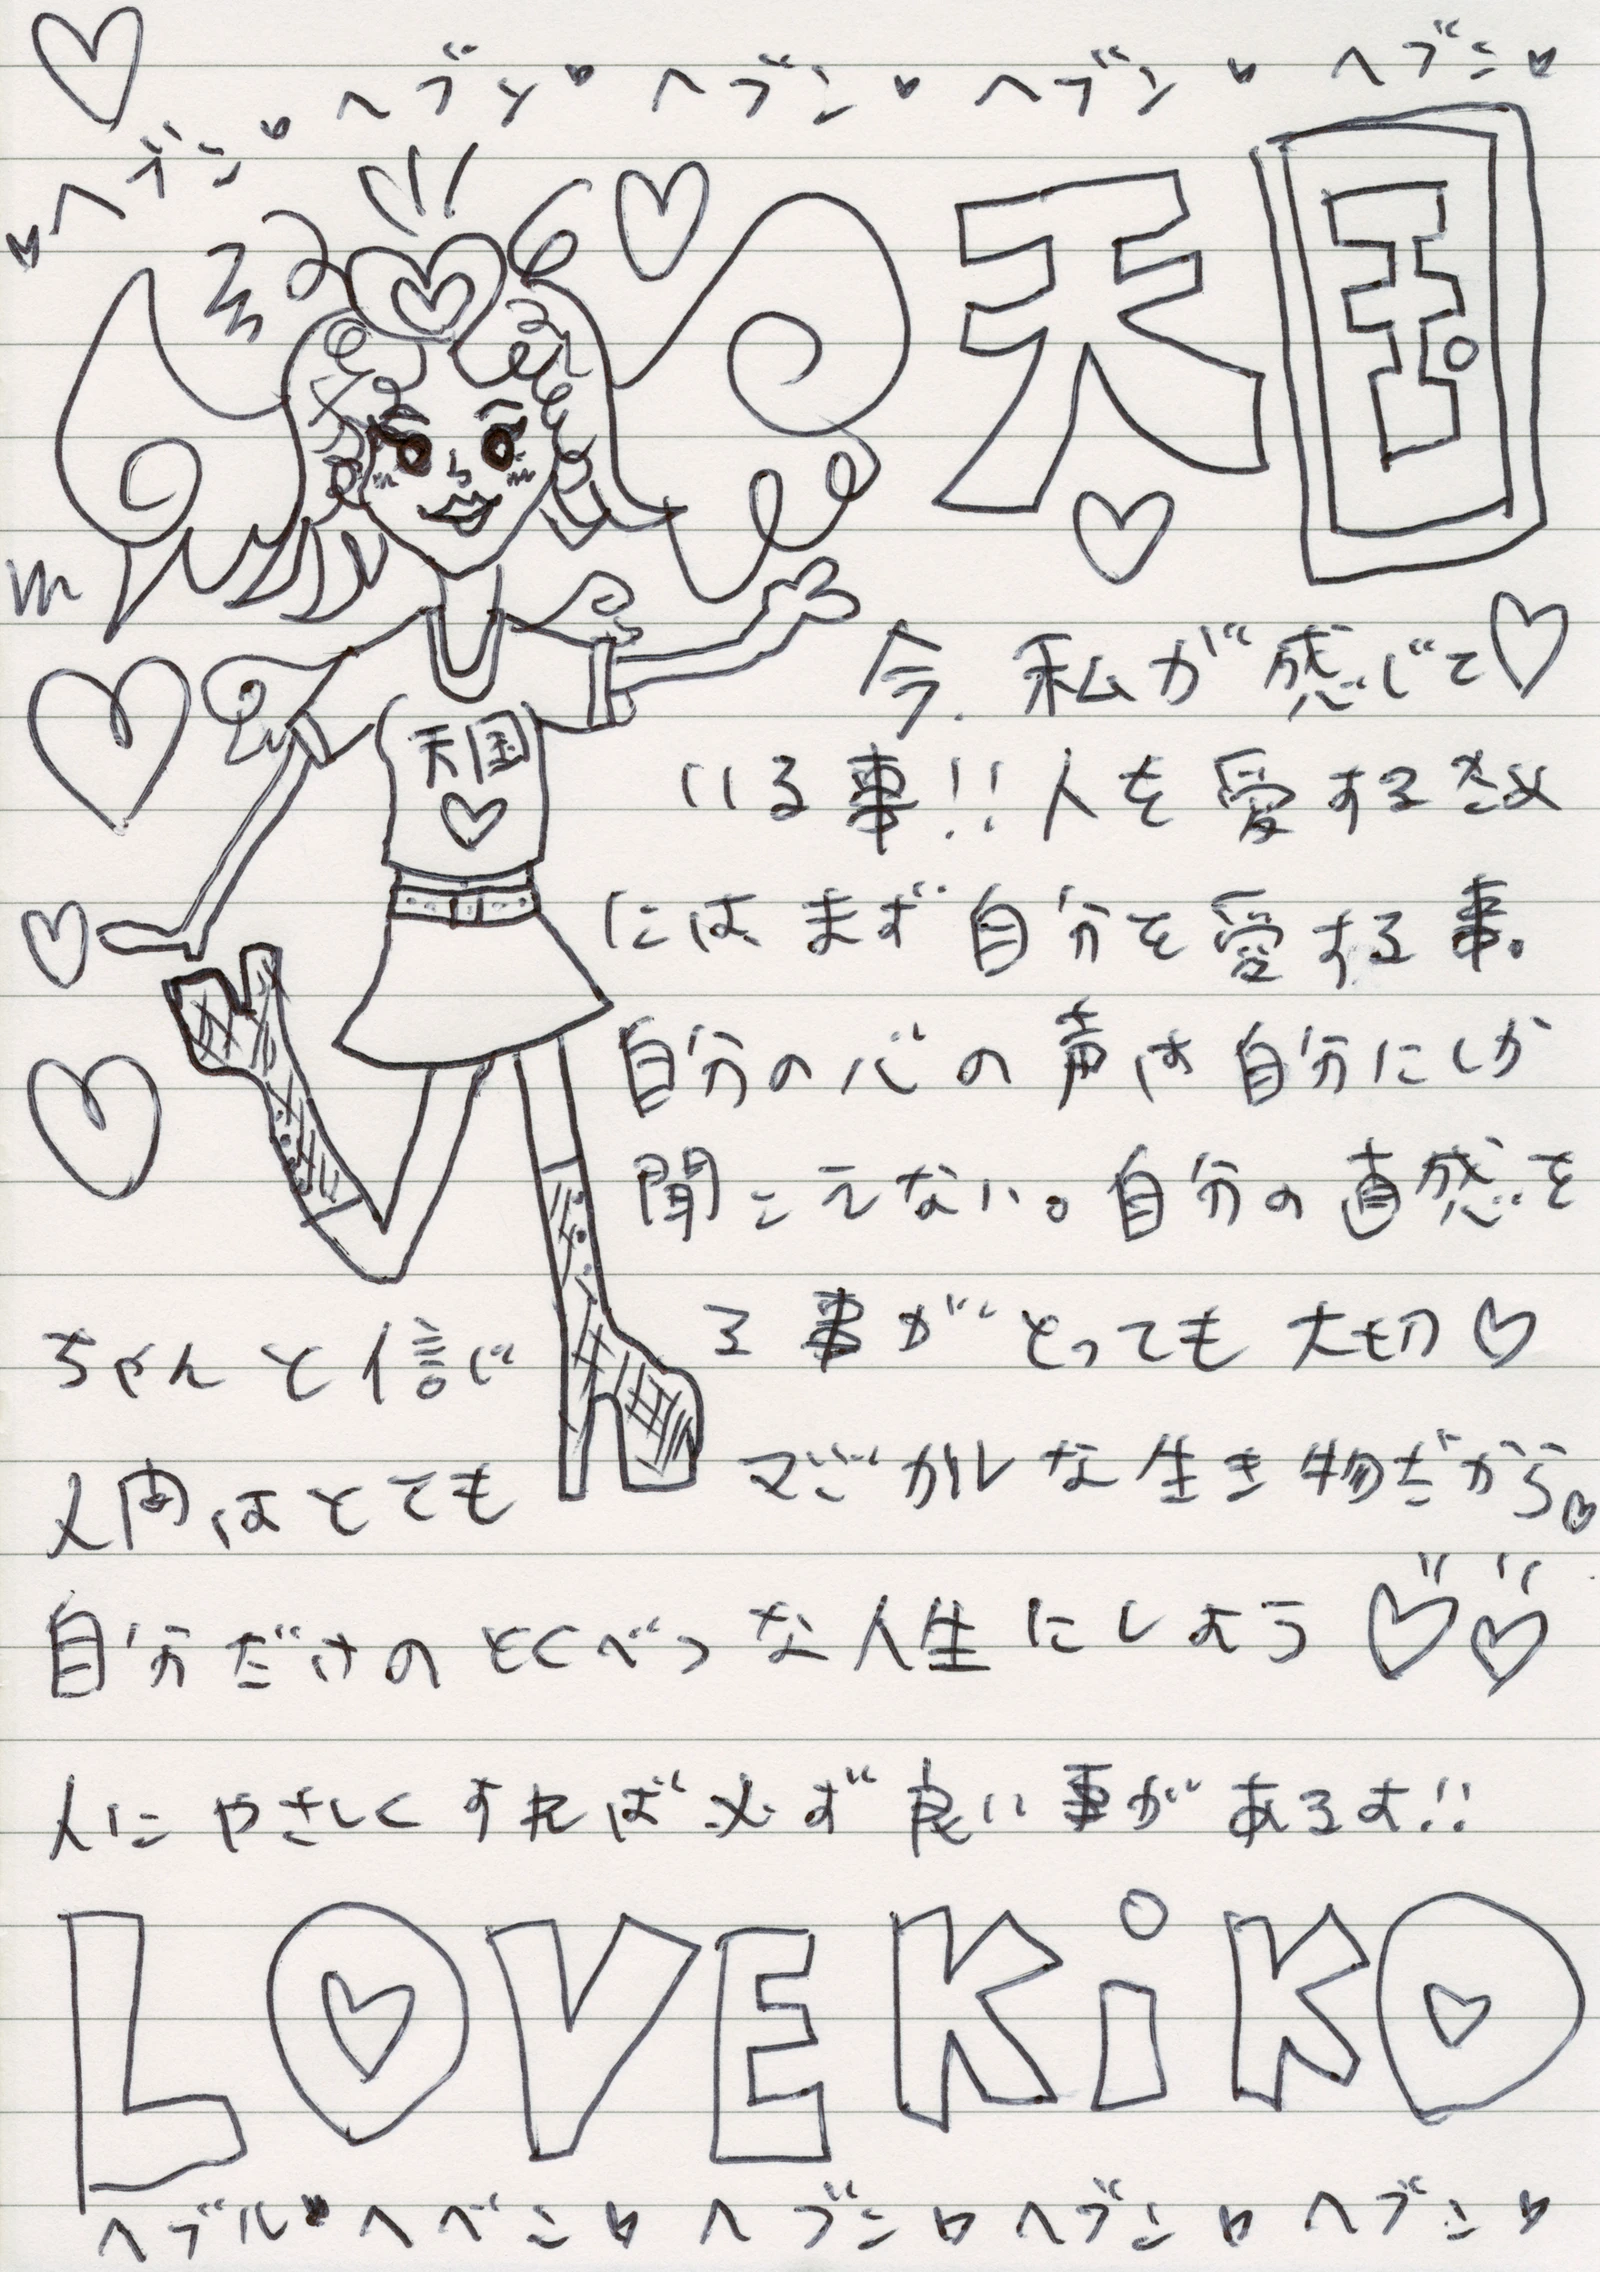 ♥ヘブン♥ヘブン♥ヘブン♥ヘブン♥ヘブン♥
天国
天国
今、私が感じて
いる事!!人を愛するため
には、まず自分を愛する事。
自分の心の声は自分にしか
聞こえない。自分の直感を
ちゃんと信じる事がとっても大切♡
人間はとてもマジカルな生き物だから♡
自分だけのとくべつな人生にしよう♡♡
人にやさしくすれば必ず良い事があるよ!!
LOVE KiKO
ヘブル♥ヘベン♥ヘブン♥ヘブン♥ヘブン♥